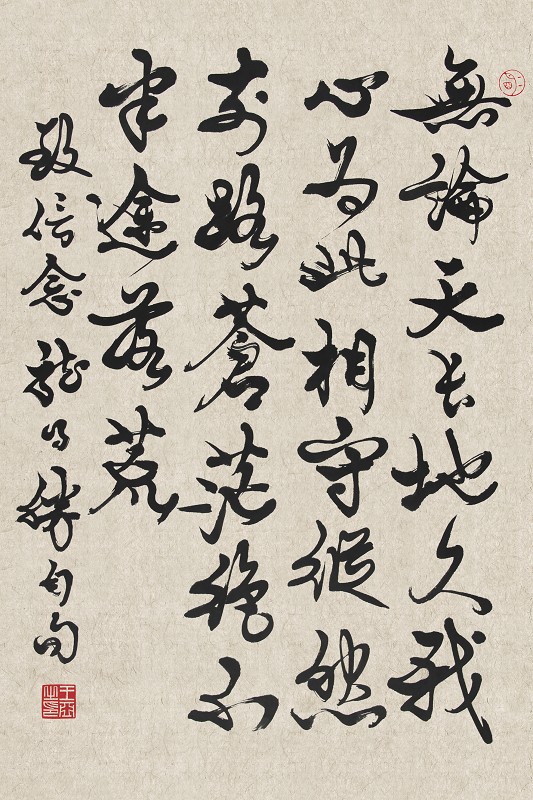 無論天長地久我
心为此相守縱然
前路蒼茫絕不
半途落荒
致信念 龍日勝自句